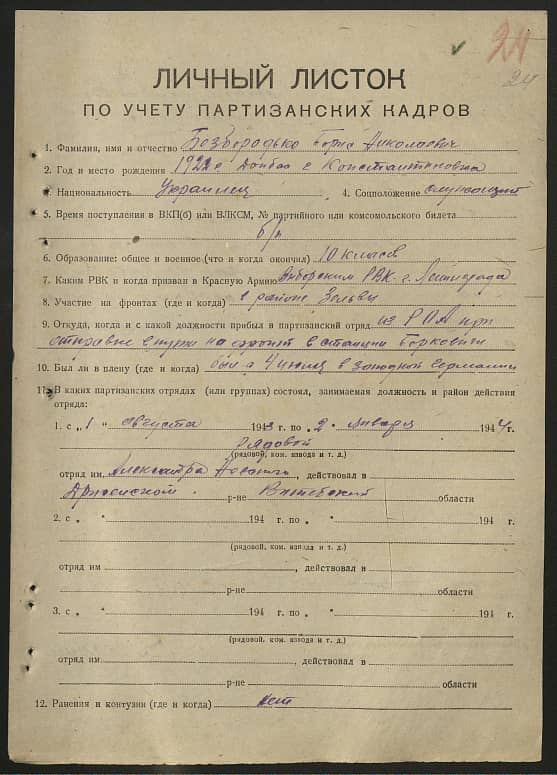 24
24
ЛИЧНЫЙ ЛИСТОК
ПО УЧЕТУ ПАРТИЗАНСКИХ КАДРОВ
1. Фамилия, имя и отчество Безбородько Борис Николаевич
2. Год и место рождения 1922 г Донбас с Константиновка
3. Национальность Украинец 4. Соцположение служащий
5. Время поступления в ВКП(б) или ВЛКСМ, № партийного или комсомольского билета
б/п
6. Образование: общее и военное (что и когда окончил) 10 класов
7. Каким РВК и когда призван в Красную Армию Выборским РВК г. Ленинграда
8. Участие на фронтах (где и когда) в районе Зельвы
9. Откуда, когда и с какой должности прибыл в партизанский отряд из РОА при
отправке на фронт в станции Борковичи
10. Был ли в плену (где и когда) был с 4 июля в западной Германии
11. В каких партизанских отрядах (или группах) состоял, занимаемая должность и район действия
отряда:
1. с „1 " августа 1943 г. по „ 2 " января 1944 г.
рядовой
(рядовой, ком. взвода и т. д.)
отряд им. Александра , действовал в
р-не Витебский области
2. с „ " 194 г. по „ " 194 г.
(рядовой, ком. взвода и т. д.)
отряд им , действовал в
р-не области
3. с „ " 194 г. по „ " 194 г.
(рядовой, ком. взвода и т. д.)
отряд им. , действовал в
р-не области
12. Ранения и контузии (где и когда) нет